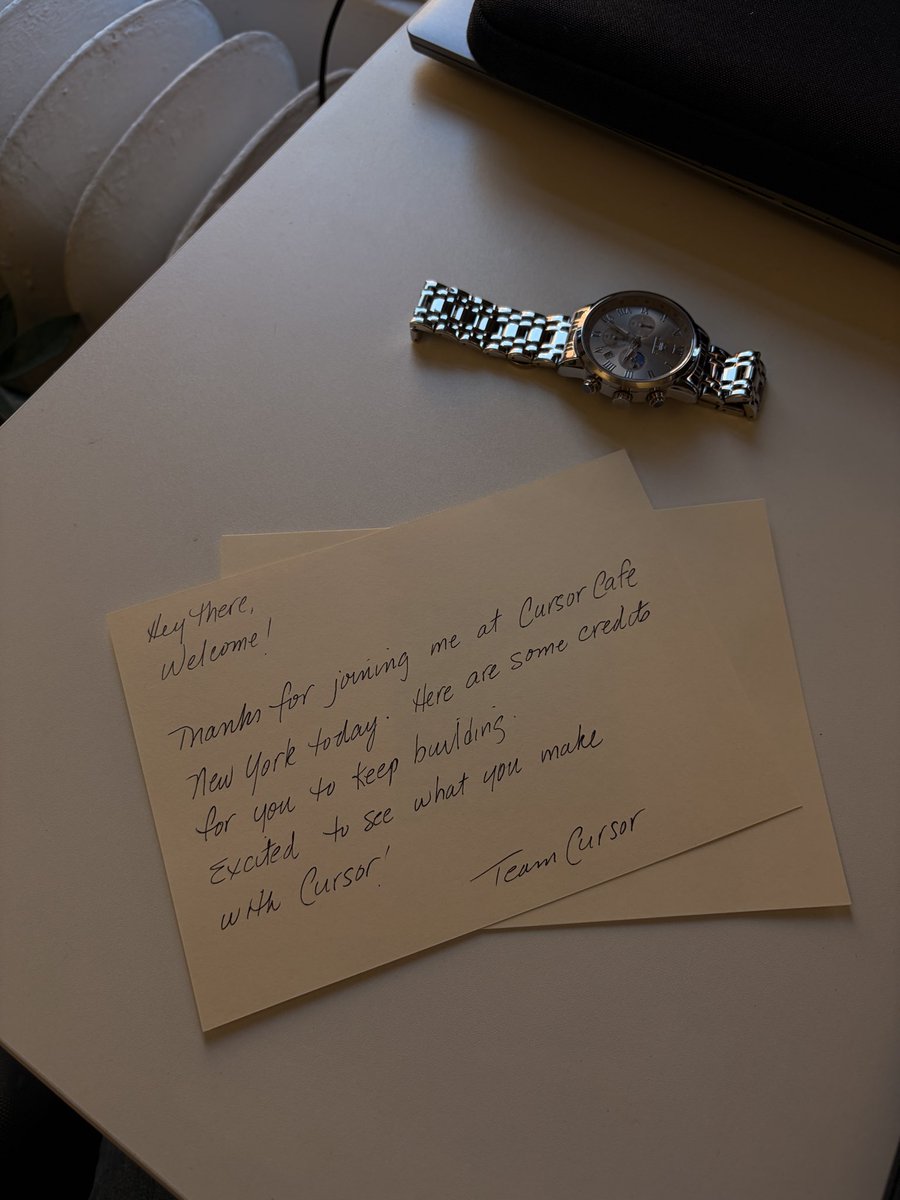 Hey there,
Welcome!
Thanks for joining me at Cursor Cafe
New York today. Here are some credits
for you to keep building.
Excited to see what you make
with Cursor!
Team Cursor